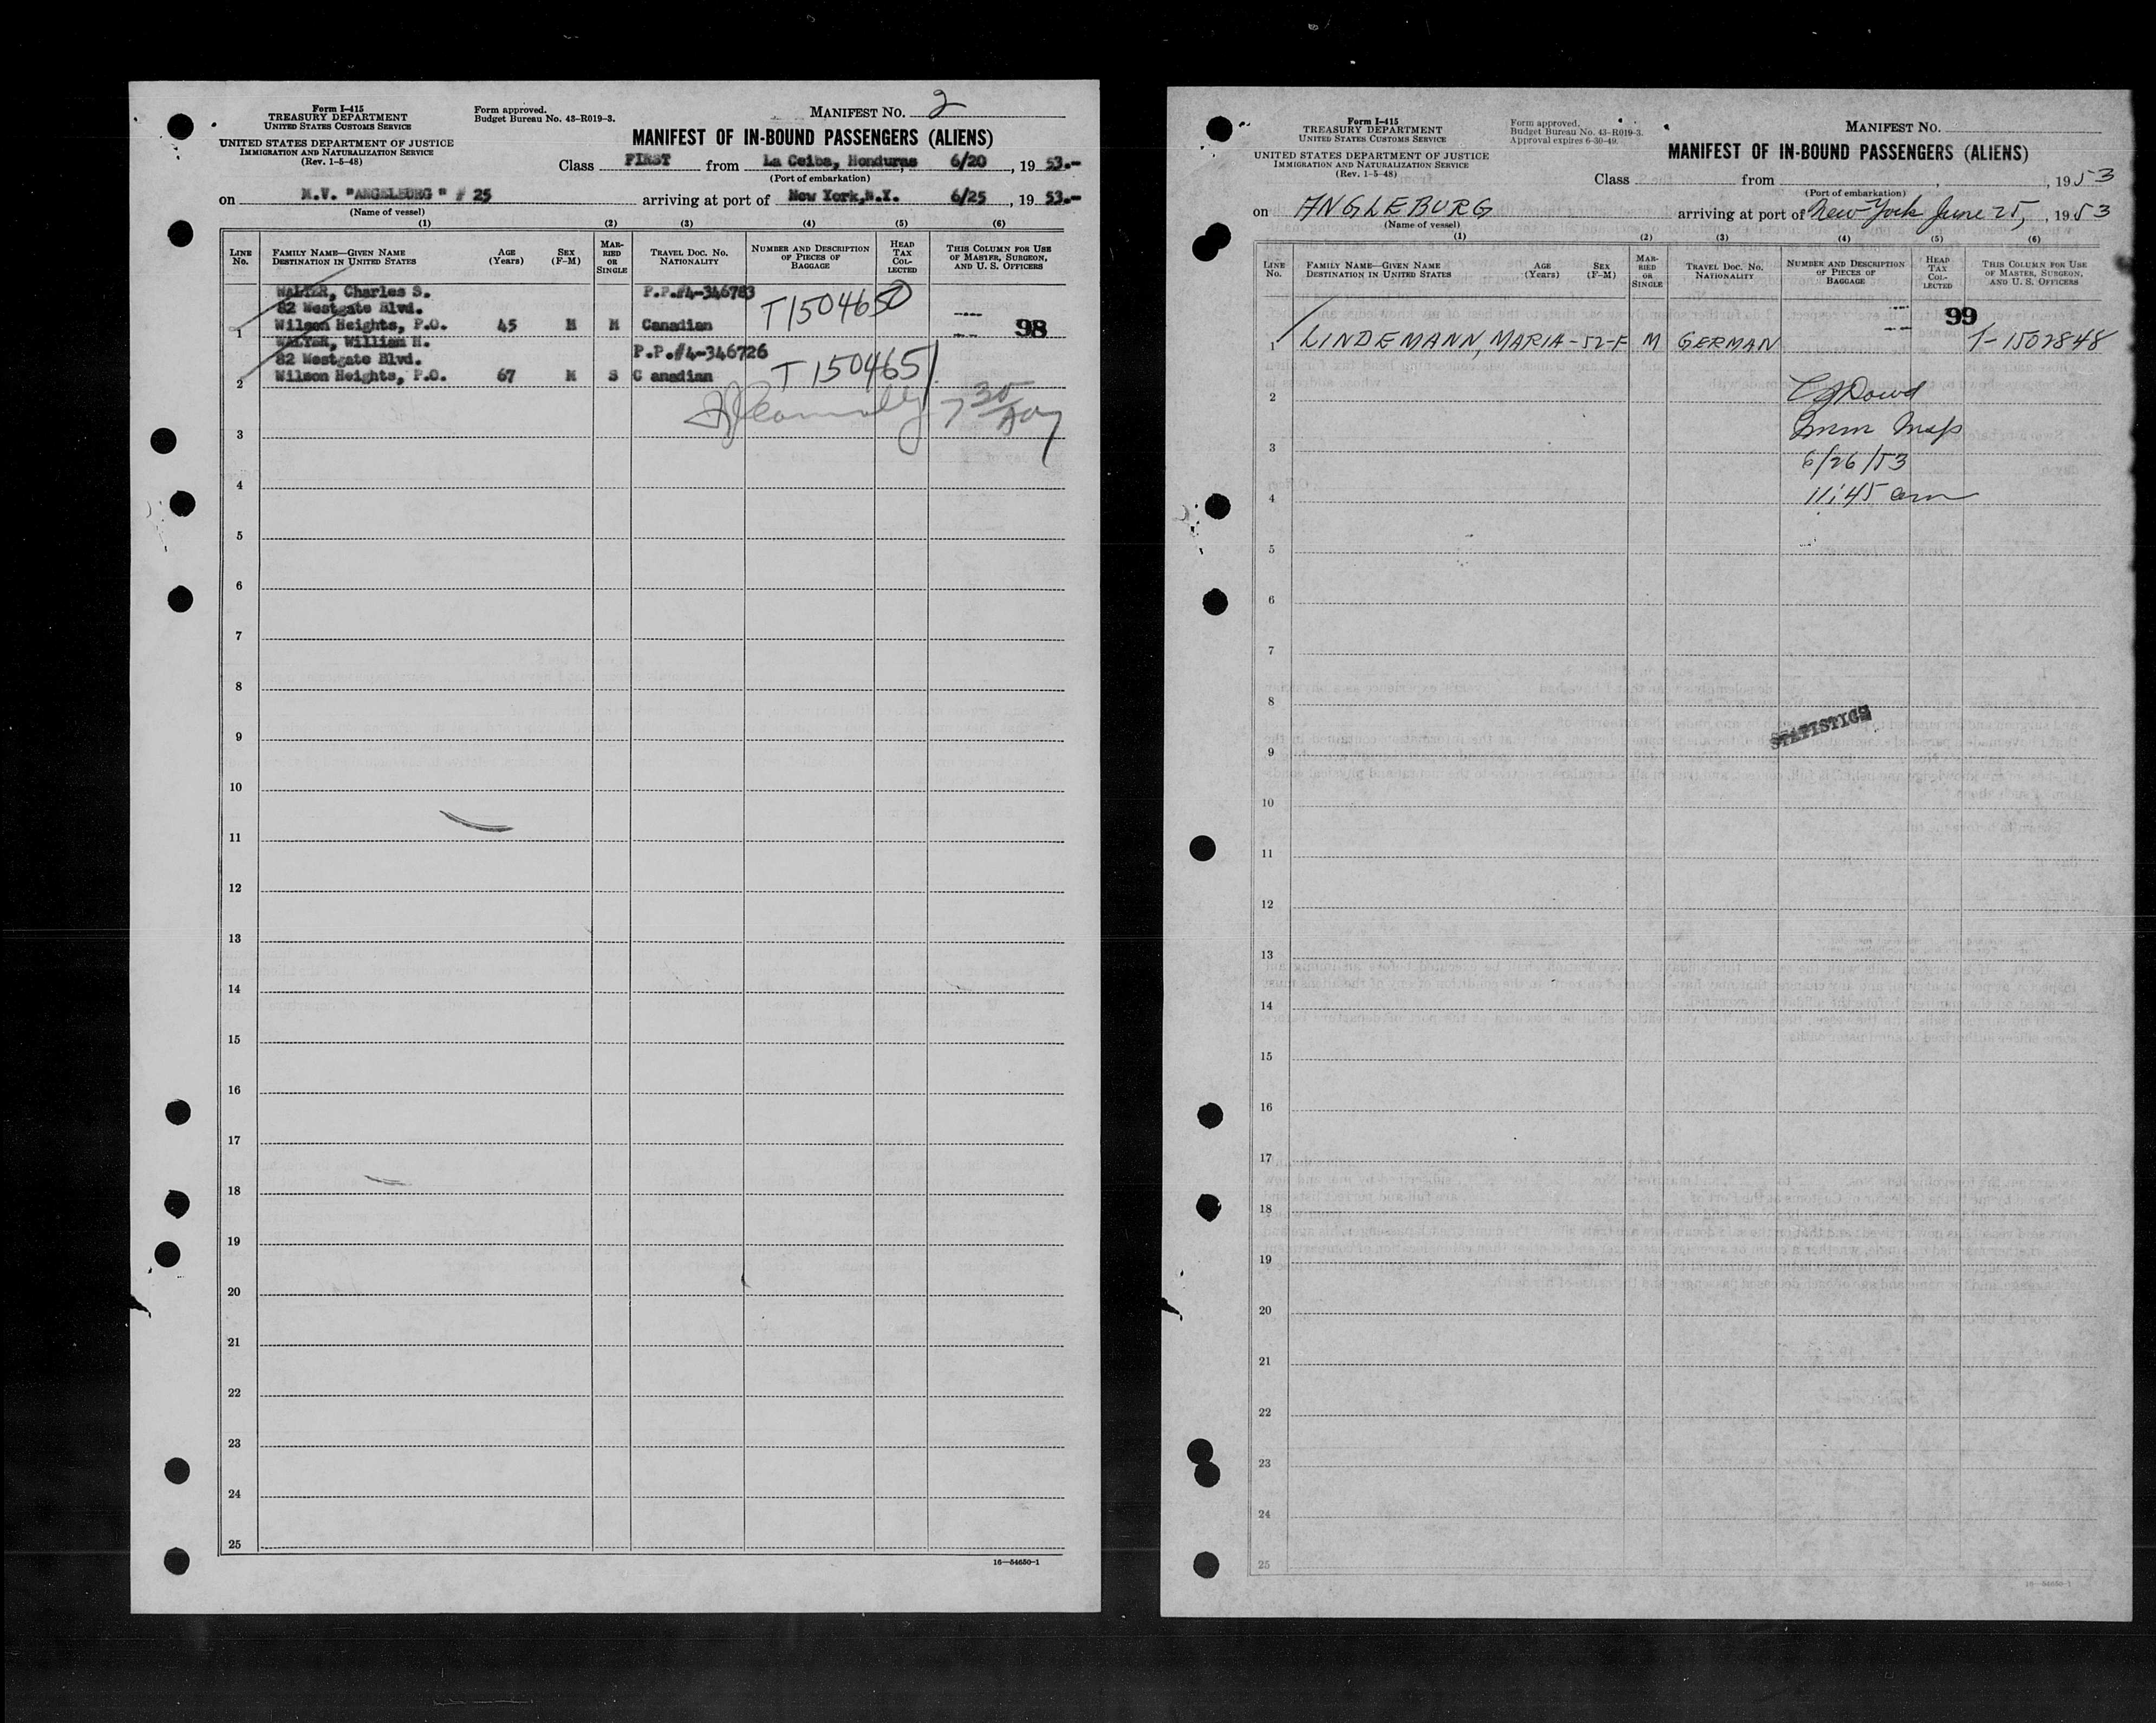 Form I-415
TREASURY DEPARTMENT
UNITED STATES CUSTOMS SERVICE
UNITED STATES DEPARTMENT OF JUSTICE
IMMIGRATION AND NATURALIZATION SERVICE
(Rev. 1-5-48)
Form approved.
Budget Bureau No. 43-R019-3.
MANIFEST No. 2
MANIFEST OF IN-BOUND PASSENGERS (ALIENS)
Class FIRST from La Ceiba, Honduras 6/20, 19 53.-
(Port of embarkation)
on M.V. "ANGELBURG " # 25 arriving at port of New York,N.Y. 6/25, 19 53.-
(Name of vessel)
(1) (2) (3) (4) (5) (6)
LINE No. FAMILY NAME—GIVEN NAME DESTINATION IN UNITED STATES AGE (Years) SEX (F-M) MARRIED OR SINGLE TRAVEL DOC. NO. NATIONALITY NUMBER AND DESCRIPTION OF PIECES OF BAGGAGE HEAD TAX COLLECTED THIS COLUMN FOR USE OF MASTER, SURGEON, AND U. S. OFFICERS
WALTER, Charles S. P.P.#4-346783
82 Westgate Blvd. T1504650
1 Wilson Heights, P.O. 45 M M Canadian 98
WALTER, William H. P.P.#4-346726
82 Westgate Blvd.
2 Wilson Heights, P.O. 67 M S C anadian T1504651
3
4
5
6
7
8
9
10
11
12
13
14
15
16
17
18
19
20
21
22
23
24
25
16—54650-1
Form I-415
TREASURY DEPARTMENT
UNITED STATES CUSTOMS SERVICE
UNITED STATES DEPARTMENT OF JUSTICE
IMMIGRATION AND NATURALIZATION SERVICE
(Rev. 1-5-48)
Form approved.
Budget Bureau No. 43-R019-3.
Approval expires 6-30-49.
MANIFEST No.
MANIFEST OF IN-BOUND PASSENGERS (ALIENS)
Class from , 1953
(Port of embarkation)
on ANGLEBURG arriving at port of New York June 25, , 1953
(Name of vessel)
(1) (2) (3) (4) (5) (6)
LINE No. FAMILY NAME—GIVEN NAME DESTINATION IN UNITED STATES AGE (Years) SEX (F-M) MARRIED OR SINGLE TRAVEL DOC. NO. NATIONALITY NUMBER AND DESCRIPTION OF PIECES OF BAGGAGE HEAD TAX COLLECTED THIS COLUMN FOR USE OF MASTER, SURGEON, AND U. S. OFFICERS
99
1 LINDEMANN, MARIA - 52-F M GERMAN T-1502848
2
3
6/26/53
4 11:45 am
5
6
7
8
STATISTICS
9
10
11
12
13
14
15
16
17
18
19
20
21
22
23
24
25
16—54650-1